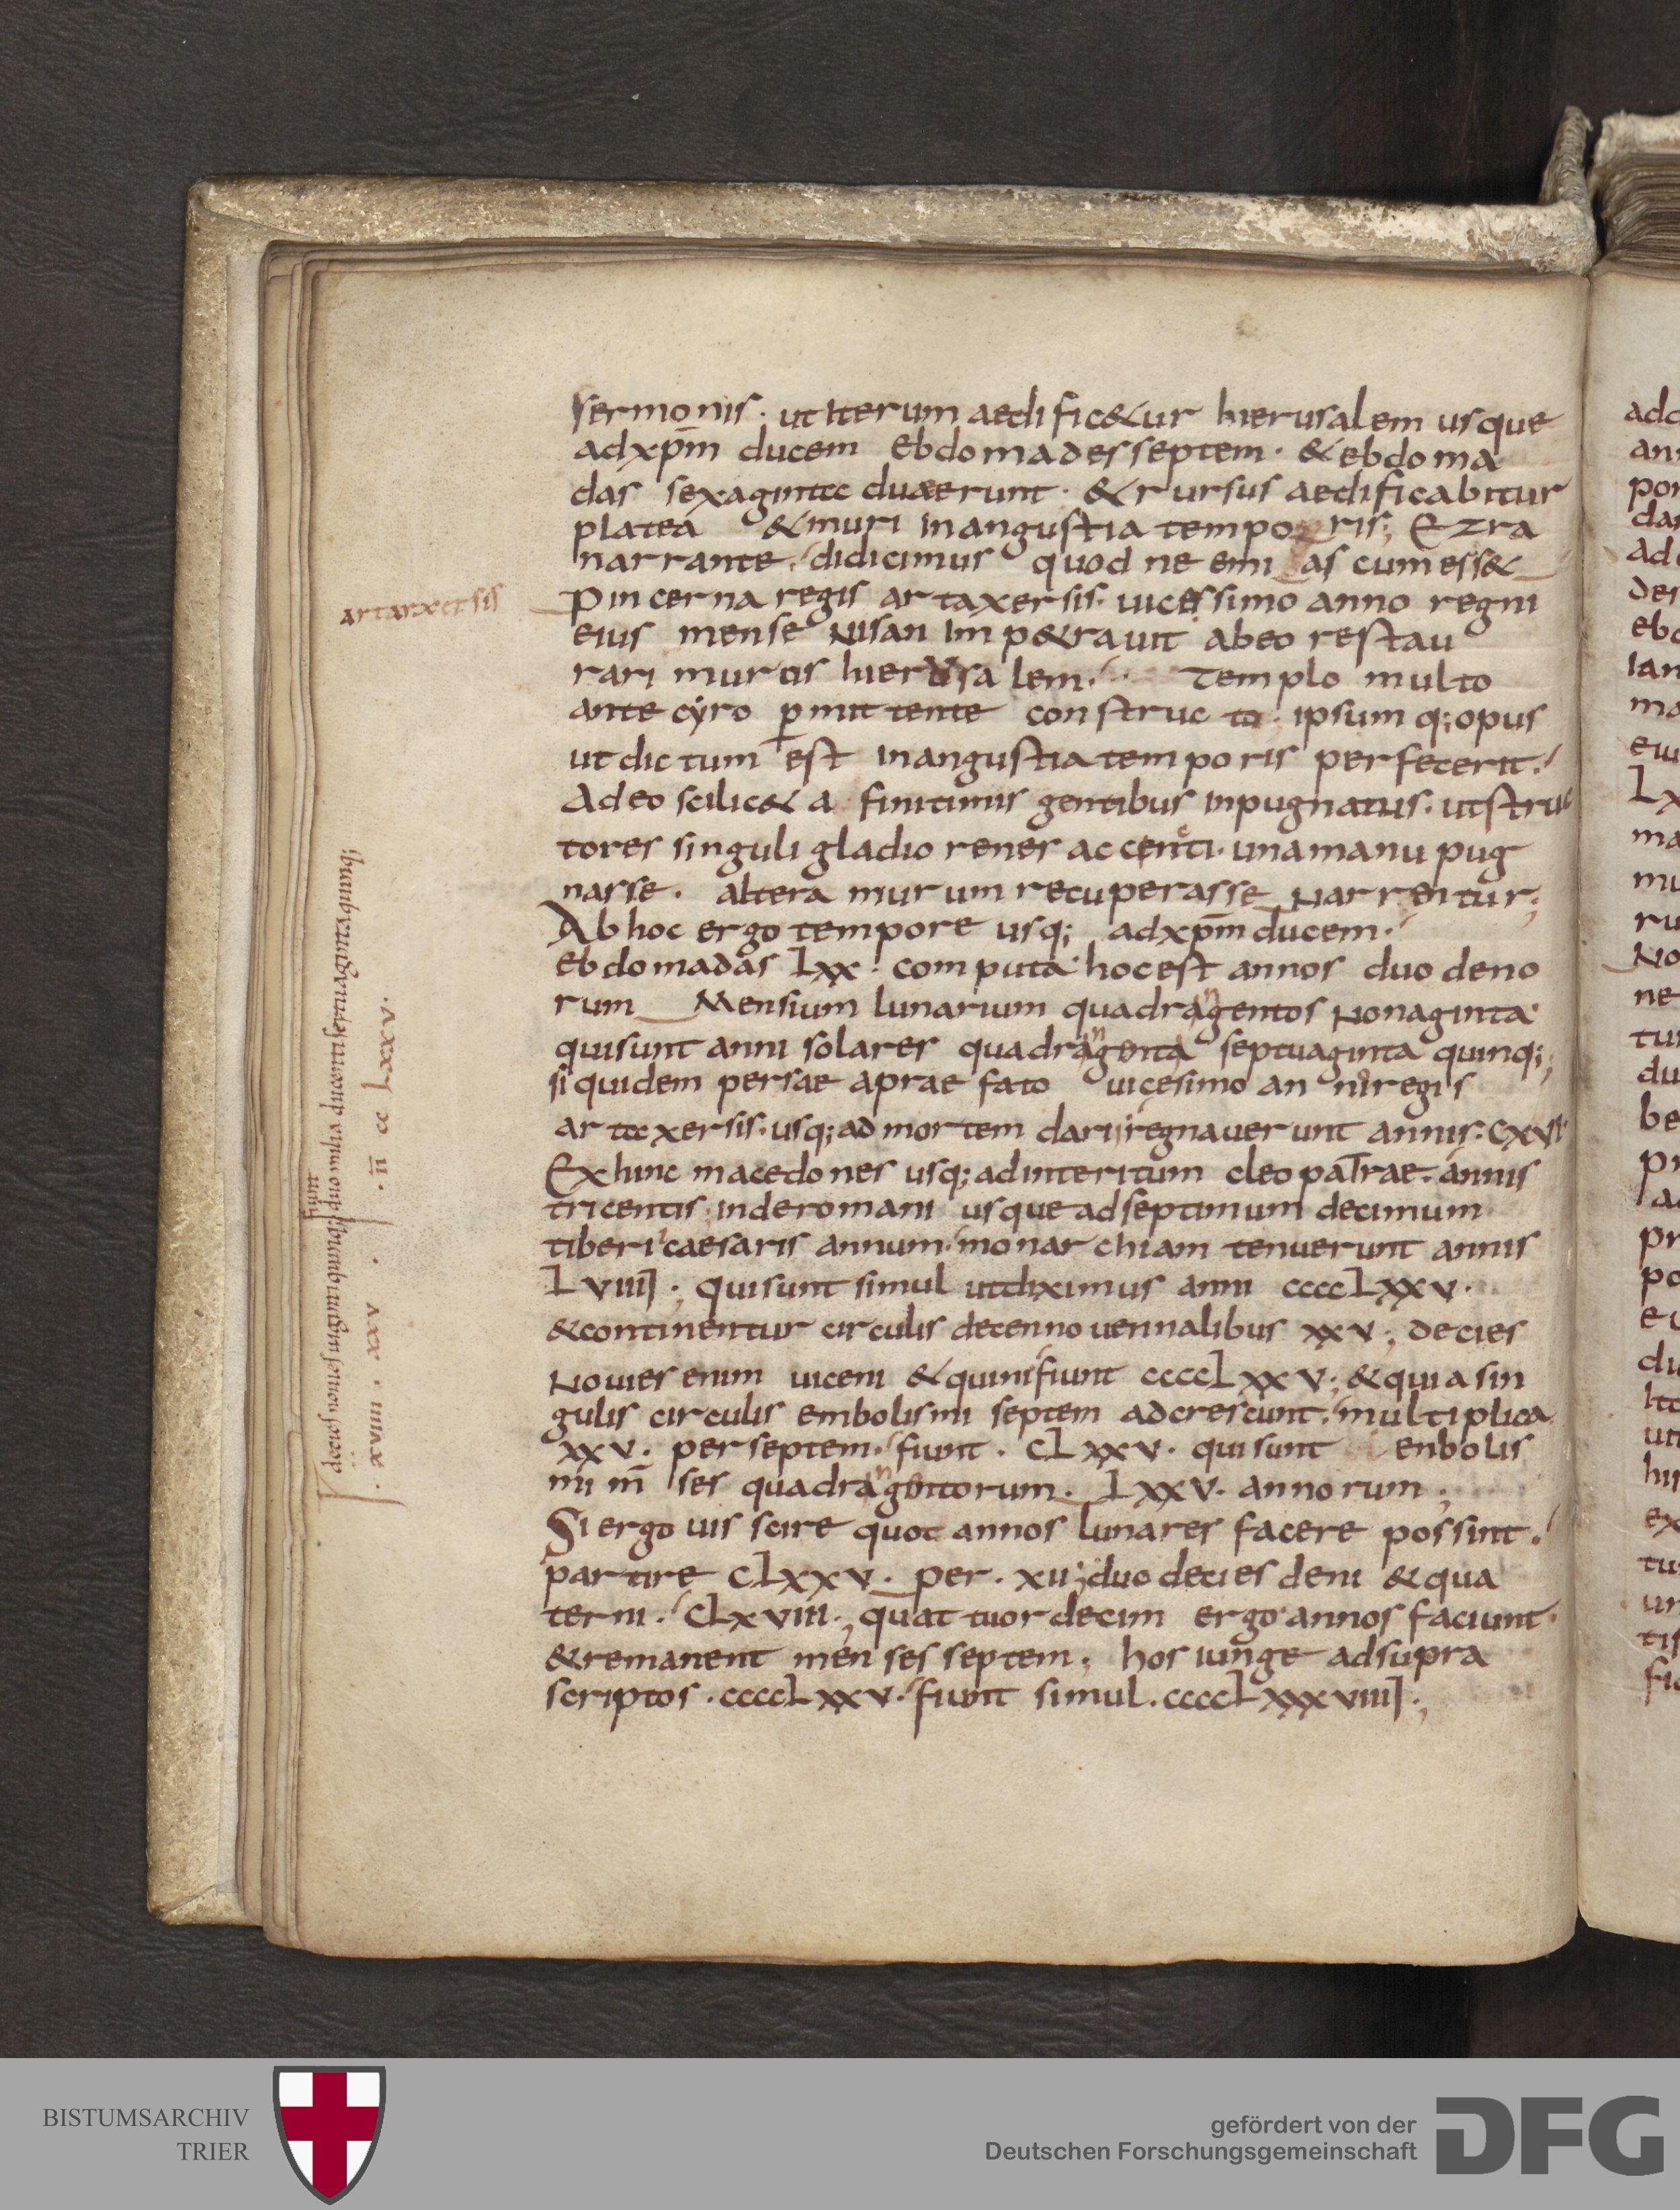 sermonis · ut iterum aedific&ur hierusalem usque
adxp̄m ducem ebdomades septem · & ebdoma
das sexaginta duaerunt · & rursus aedificabitur
platea & muri in angustia temporis; Ezra
narrante · didicimus quod neemi as cum ess&
artarxersis
pincerna regis artaxersis · uicessimo anno regni
eius mense nisan imp&rauit abeo restau
rari muros hierusalem · Templo multo
ante cyro p mittente constructo · ipsumq; opus
ut dictum est in angustia temporis perfecerit ·
Adeo scilic& a finitimis gentibus inpugnatus · ut struc
tores singuli gladio renes accenti · una manu pug
narse · altera murum recuperasse narrentur;
Ab hoc ergo tempore usq; adxp̄m ducem ·
ebdomadas Lxx · computa · hoc est annos duodeno
rum Mensium lunarium quadrangentos nonaginta
qui sunt anni solares quadraginta septuaginta quinq;
siquidem persae a praefato uicesimo anni regis
artaxersis · usq; ad mortem darii regnauerunt annis · cxvi
Exhinc macedones usq; ad interitum cleopatrae · annis
tricentis · inde romani usque ad septimum decimum
tiberi caesaris annum · monarchiam tenuerunt annis
Lviiii · ; qui sunt simul ut diximus anni ccccLxxv ·
& continentur circulis decennouennalibus xxv; decies
nouies enim uiceni & quini fiunt ccccLxxv; & quia sin
gulis circulis embolismi septem adcrescunt · multiplica
xxv · per septem · fiunt · cLxxv · qui sunt enbolis
mi m̄ ses quadrangentorum · Lxxv · annorum;
Si ergo uis scire quot annos lunares facere possint ·
partire cLxxv · per · xii; duodecies deni & qua
terni · cLxviii · ; quattuordecim ergo annos faciunt ·
& remanent menses septem · hos iunge ad supra
scriptos · ccccLxxv · fiunt simul · ccccLxxxviiii ;
decies nonies uigintiquinquies duo milia ducenti septuaginta quinq;
fiunt
· xviiii · xxv · · ii cc Lxxv ·
BISTUMSARCHIV
TRIER
gefördert von der
Deutschen Forschungsgemeinschaft
DFG